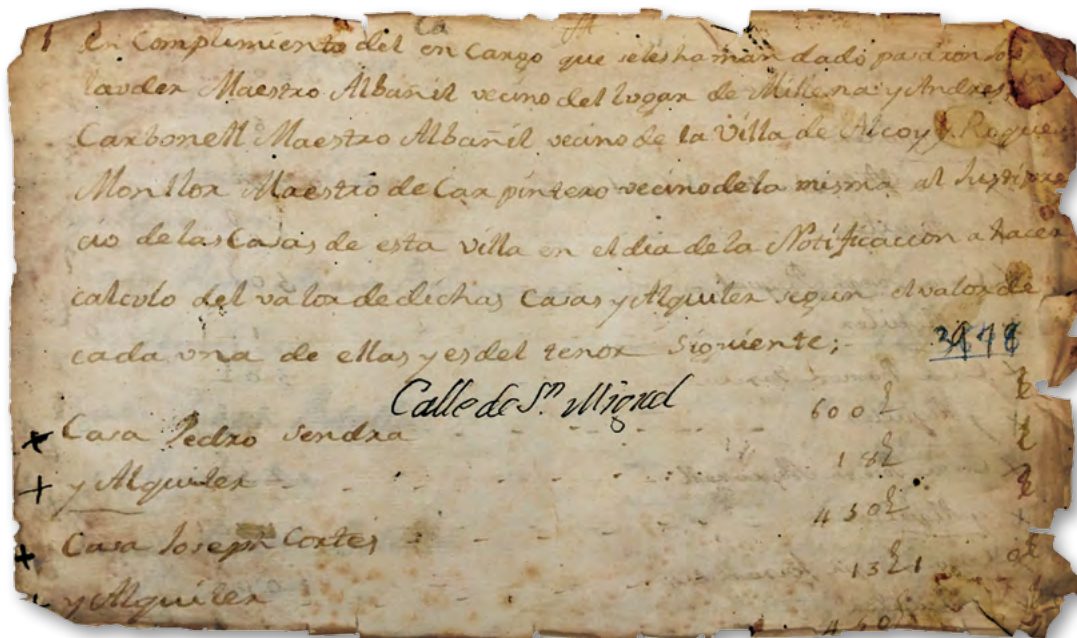 En Cumplimiento del en Cargo que seles ha man dado pasaron
Maestro Albañil vecino del lugar de Millena y Andres
Carbonell Maestro Albañil vecino de la Villa de Alcoy y Roque
Monllor Maestro de Carpintero vecino de la misma al Justipre
cio de las Casas de esta villa en el dia de la Notificacion a hacer
calculo del valor de dichas Casas y Alquiler segun el valor de
cada una de ellas y es del tenor Siguiente;
Calle de Sn. Miguel
Casa Pedro Sendra 600£
y Alquiler 18£
Casa Joseph Cortes 450£
y Alquiler 13£1
450£